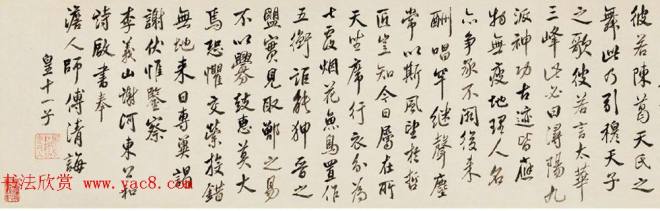 彼若陳葛天氏之
舞此乃引穆天子
之歌彼若言太華
三峰此必曰潯陽九
派神功古迹皆應
物無疲地理人名
亦爭承不闕後来
酬唱罕繼聲塵
常以斯風望於哲
匠豈知今日屬在所
天坐席行衣分為
七覆烟花魚鳥置作
五衡詎能狎晉之
盟實見取鄶之易
不以釁鼓惠莫大
焉恐懼交縈投錯
無地来日專冀謁
謝伏惟鑒察
李義山謝河東公和
詩啟書奉
澹人師傅清誨
皇十一子
书法欣赏 www.yac8.com